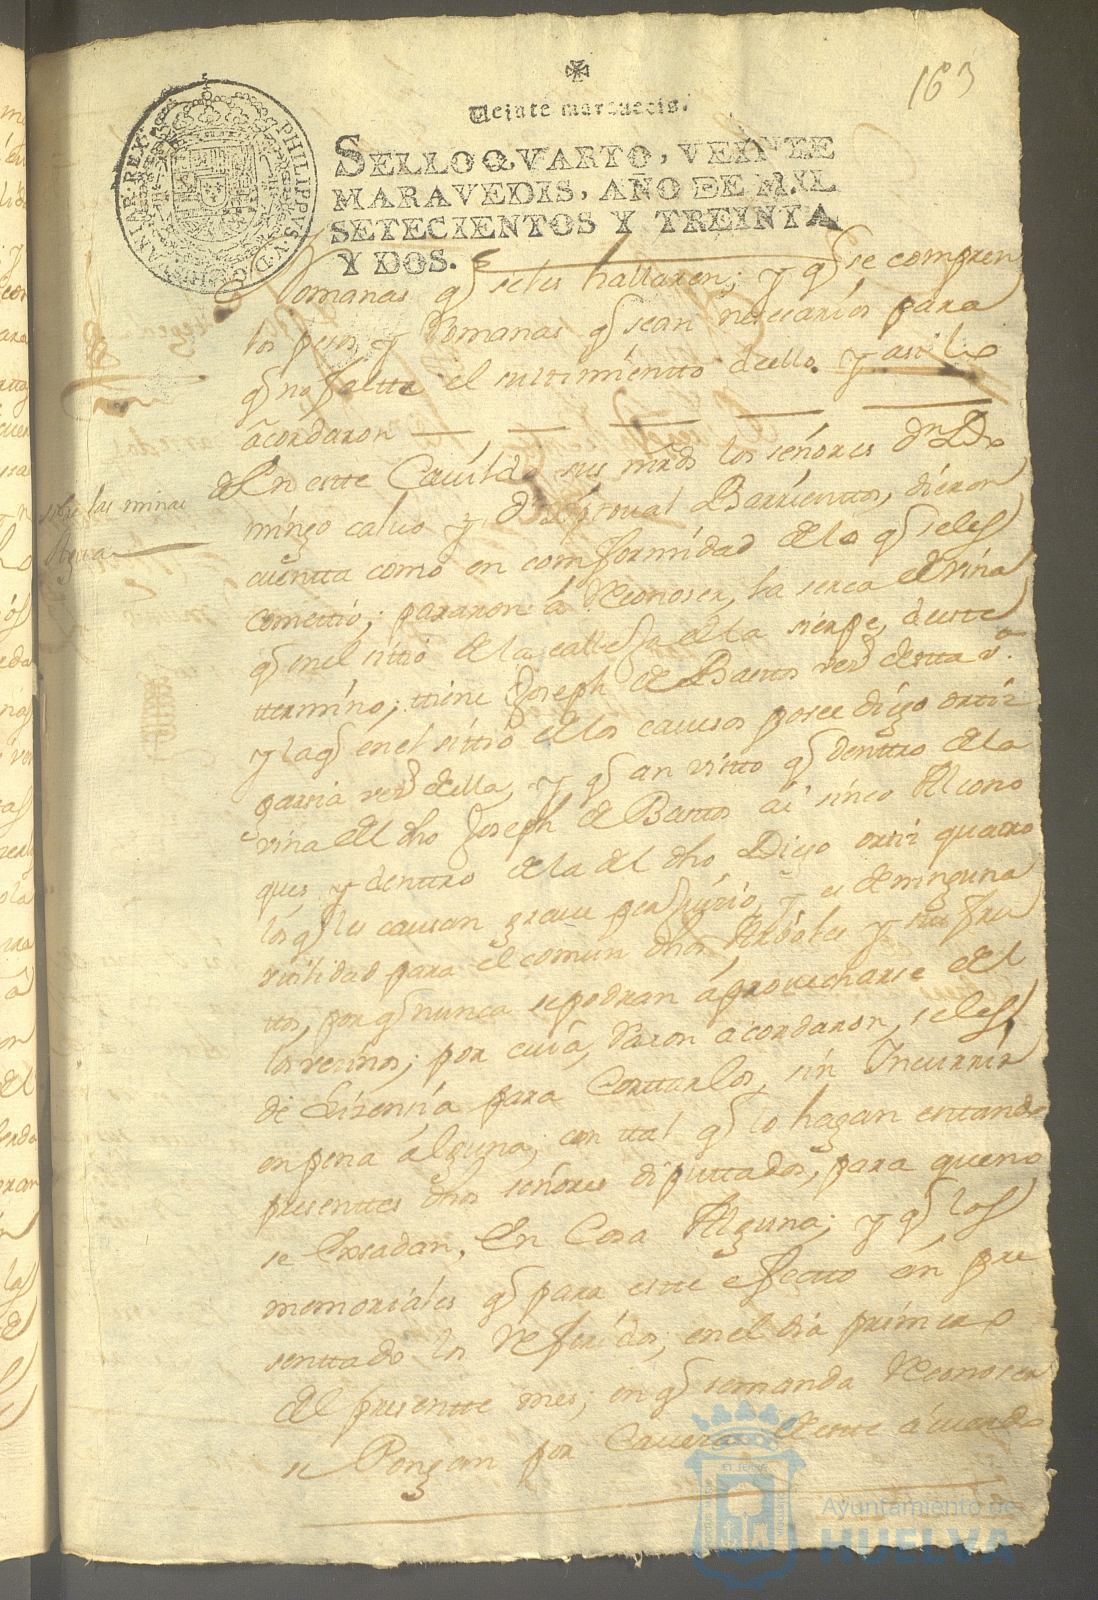 163
Veinte maravedis.
SELLO QVARTO, VEINTE
MARAVEDIS, AÑO DE MIL
SETECIENTOS Y TREINTA
Y DOS.
PHILIPPVS V D G HISPANIAR REX
Romanas q̃ seles hallaren; y q̃ se compren
los pesos y Romanas q̃ sean nesesarios para
q̃ no faltte el surtimientto dello. y asi lo
acordaron
sobre las viñas
En estte Cavildo sus mrds los señores Dn Do
mingo calvo y Dn Barrienttos, dieron
cuentta como en comformidad de lo q̃ seles
comettió; pasaron á Reconoser, la serca de viña
q̃ en el sittio de la cabessa de la sierpe, deste
ttermino; ttiene Joseph de Bastos vesº destta vª
y la q̃ en el sittio de los posee diego ortiz
garsia vesº della, y q̃ an visto q̃ denttro de la
viña del dho Joseph de Bastos ai sinco Alcono
ques y denttro de la del dho Diego ortiz quatro
los q̃ les causan graue perjuicio, y es de ninguna
vtilidad para el comun dhos Arboles y su fru
tto, por q̃ nunca se podran áprovecharse del
los vecinos; por cuiá Rason acordaron, seles
de Lizensia para Corttarlos, sin Incurrir
en pena alguna; con ttal q̃ lo hagan estando
presenttes dhos señores diputtados, para que no
se Exsedan, En Cosa Alguna; y q̃ los
memoriales q̃ para estte efectto an pre
senttado los Referidos; en el dia primero
del presentte mes; en q̃ se manda Reconoser
se Pongan por Cavesa de este acuerdo
Ayuntamiento de
HUELVA